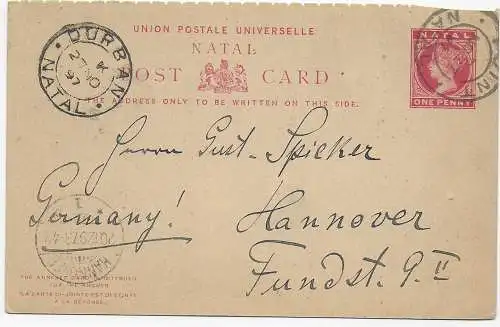 UNION POSTALE UNIVERSELLE
NATAL
POST CARD
THE ADDRESS ONLY TO BE WRITTEN ON THIS SIDE.
DURBAN
NATAL
NATAL
ONE PENNY
Herrn Gust. Spieker
Germany!
Hannover
Fundst. 9. II
THE ANNEXED CARD IS INTENDED
FOR THE ANSWER
(LA CARTE CI-JOINTE EST DESTINÉE
À LA RÉPONSE)